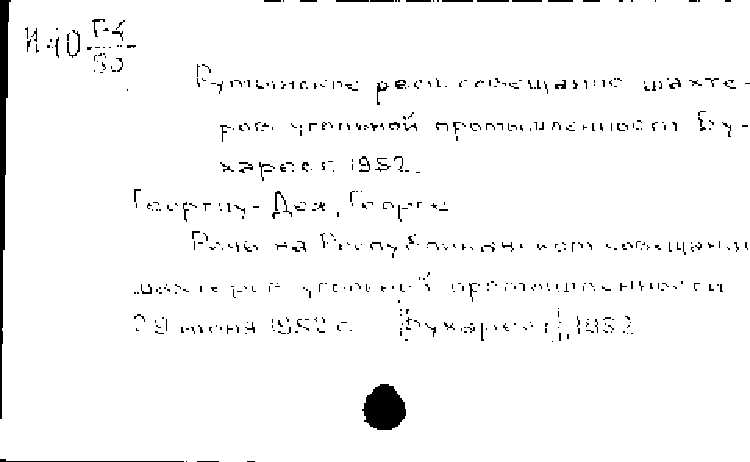 И 40 Г-4
80
Румынское респ. совещание шахте-
ров угольной промышленности Бу-
харест 1952.
Георгиу-Деж, Георге
Речь на Республиканском совещании
шахтеров угольной промышленности
29 июня 1952 г. Бухарест, 1952